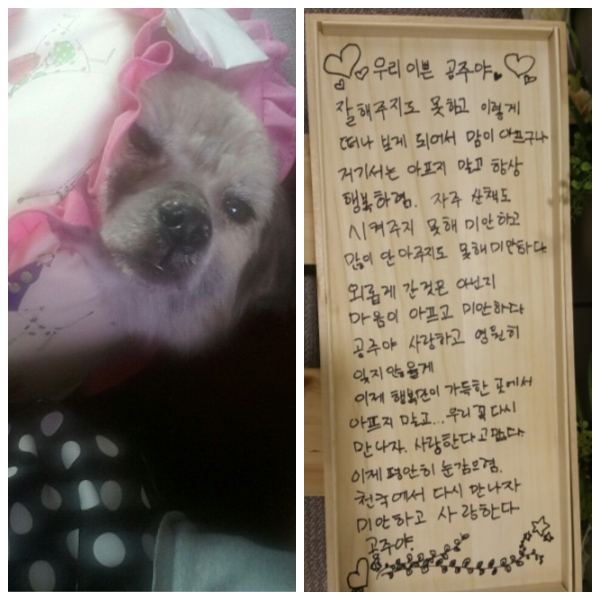 우리 이쁜 공주야.
잘해주지도 못하고 이렇게
떠나 보게 되어서 맘이 아프구나
저기서는 아프지 말고 항상
행복하렴. 자주 산책도
시켜주지 못해 미안하고
많이 안아주지도 못해 미안하다
외롭게 간것은 아닌지
마음이 아프고 미안하다
공주야 사랑하고 영원히
잊지않을게
이제 행복만이 가득한 곳에서
아프지 말고... 우리 꼭 다시
만나자. 사랑한다 고맙다.
이제 평안히 눈감으렴.
천국에서 다시 만나자
미안하고 사랑한다.
공주야.